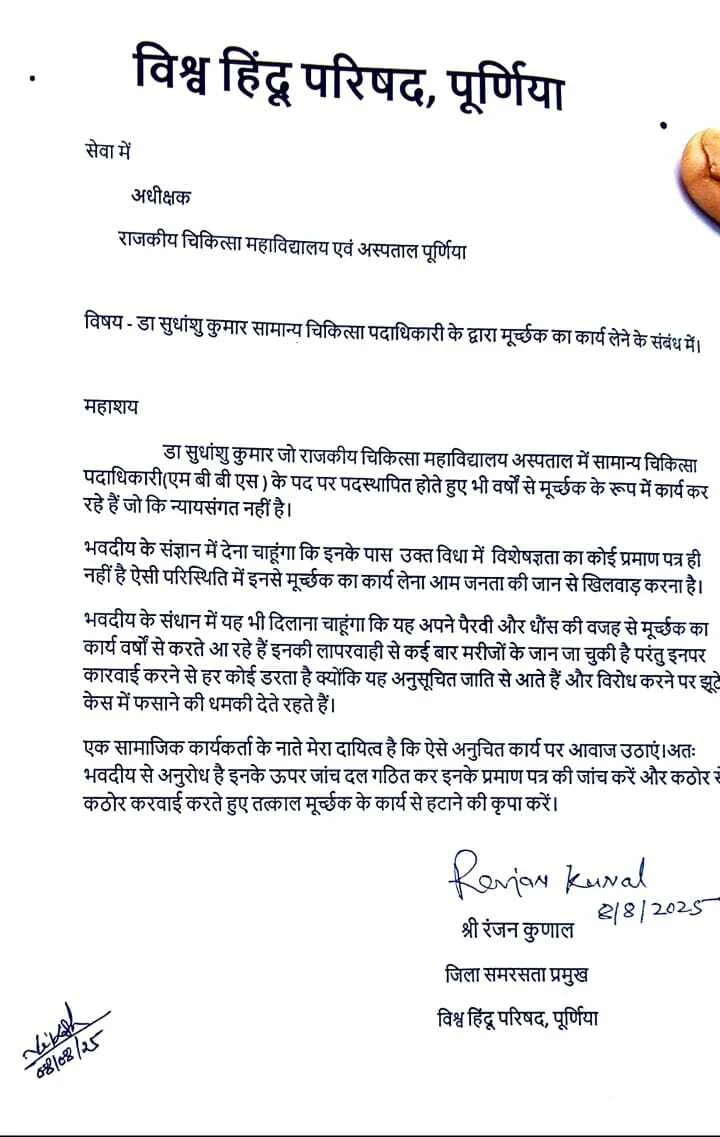 विश्व हिंदू परिषद, पूर्णिया
सेवा में
अधीक्षक
राजकीय चिकित्सा महाविद्यालय एवं अस्पताल पूर्णिया
विषय - डा सुधांशु कुमार सामान्य चिकित्सा पदाधिकारी के द्वारा मूर्च्छक का कार्य लेने के संबंध में।
महाशय
डा सुधांशु कुमार जो राजकीय चिकित्सा महाविद्यालय अस्पताल में सामान्य चिकित्सा
पदाधिकारी(एम बी बी एस ) के पद पर पदस्थापित होते हुए भी वर्षों से मूर्च्छक के रूप में कार्य कर
रहे हैं जो कि न्यायसंगत नहीं है।
भवदीय के संज्ञान में देना चाहूंगा कि इनके पास उक्त विधा में विशेषज्ञता का कोई प्रमाण पत्र ही
नहीं है ऐसी परिस्थिति में इनसे मूर्च्छक का कार्य लेना आम जनता की जान से खिलवाड़ करना है।
भवदीय के संधान में यह भी दिलाना चाहूंगा कि यह अपने पैरवी और धौंस की वजह से मूर्च्छक का
कार्य वर्षों से करते आ रहे हैं इनकी लापरवाही से कई बार मरीजों के जान जा चुकी है परंतु इनपर
कारवाई करने से हर कोई डरता है क्योंकि यह अनुसूचित जाति से आते हैं और विरोध करने पर झूठे
केस में फसाने की धमकी देते रहते हैं।
एक सामाजिक कार्यकर्ता के नाते मेरा दायित्व है कि ऐसे अनुचित कार्य पर आवाज उठाएं।अतः
भवदीय से अनुरोध है इनके ऊपर जांच दल गठित कर इनके प्रमाण पत्र की जांच करें और कठोर से
कठोर करवाई करते हुए तत्काल मूर्च्छक के कार्य से हटाने की कृपा करें।
Ranjan Kunal
8/8/2025
श्री रंजन कुणाल
जिला समरसता प्रमुख
विश्व हिंदू परिषद, पूर्णिया
08/08/25